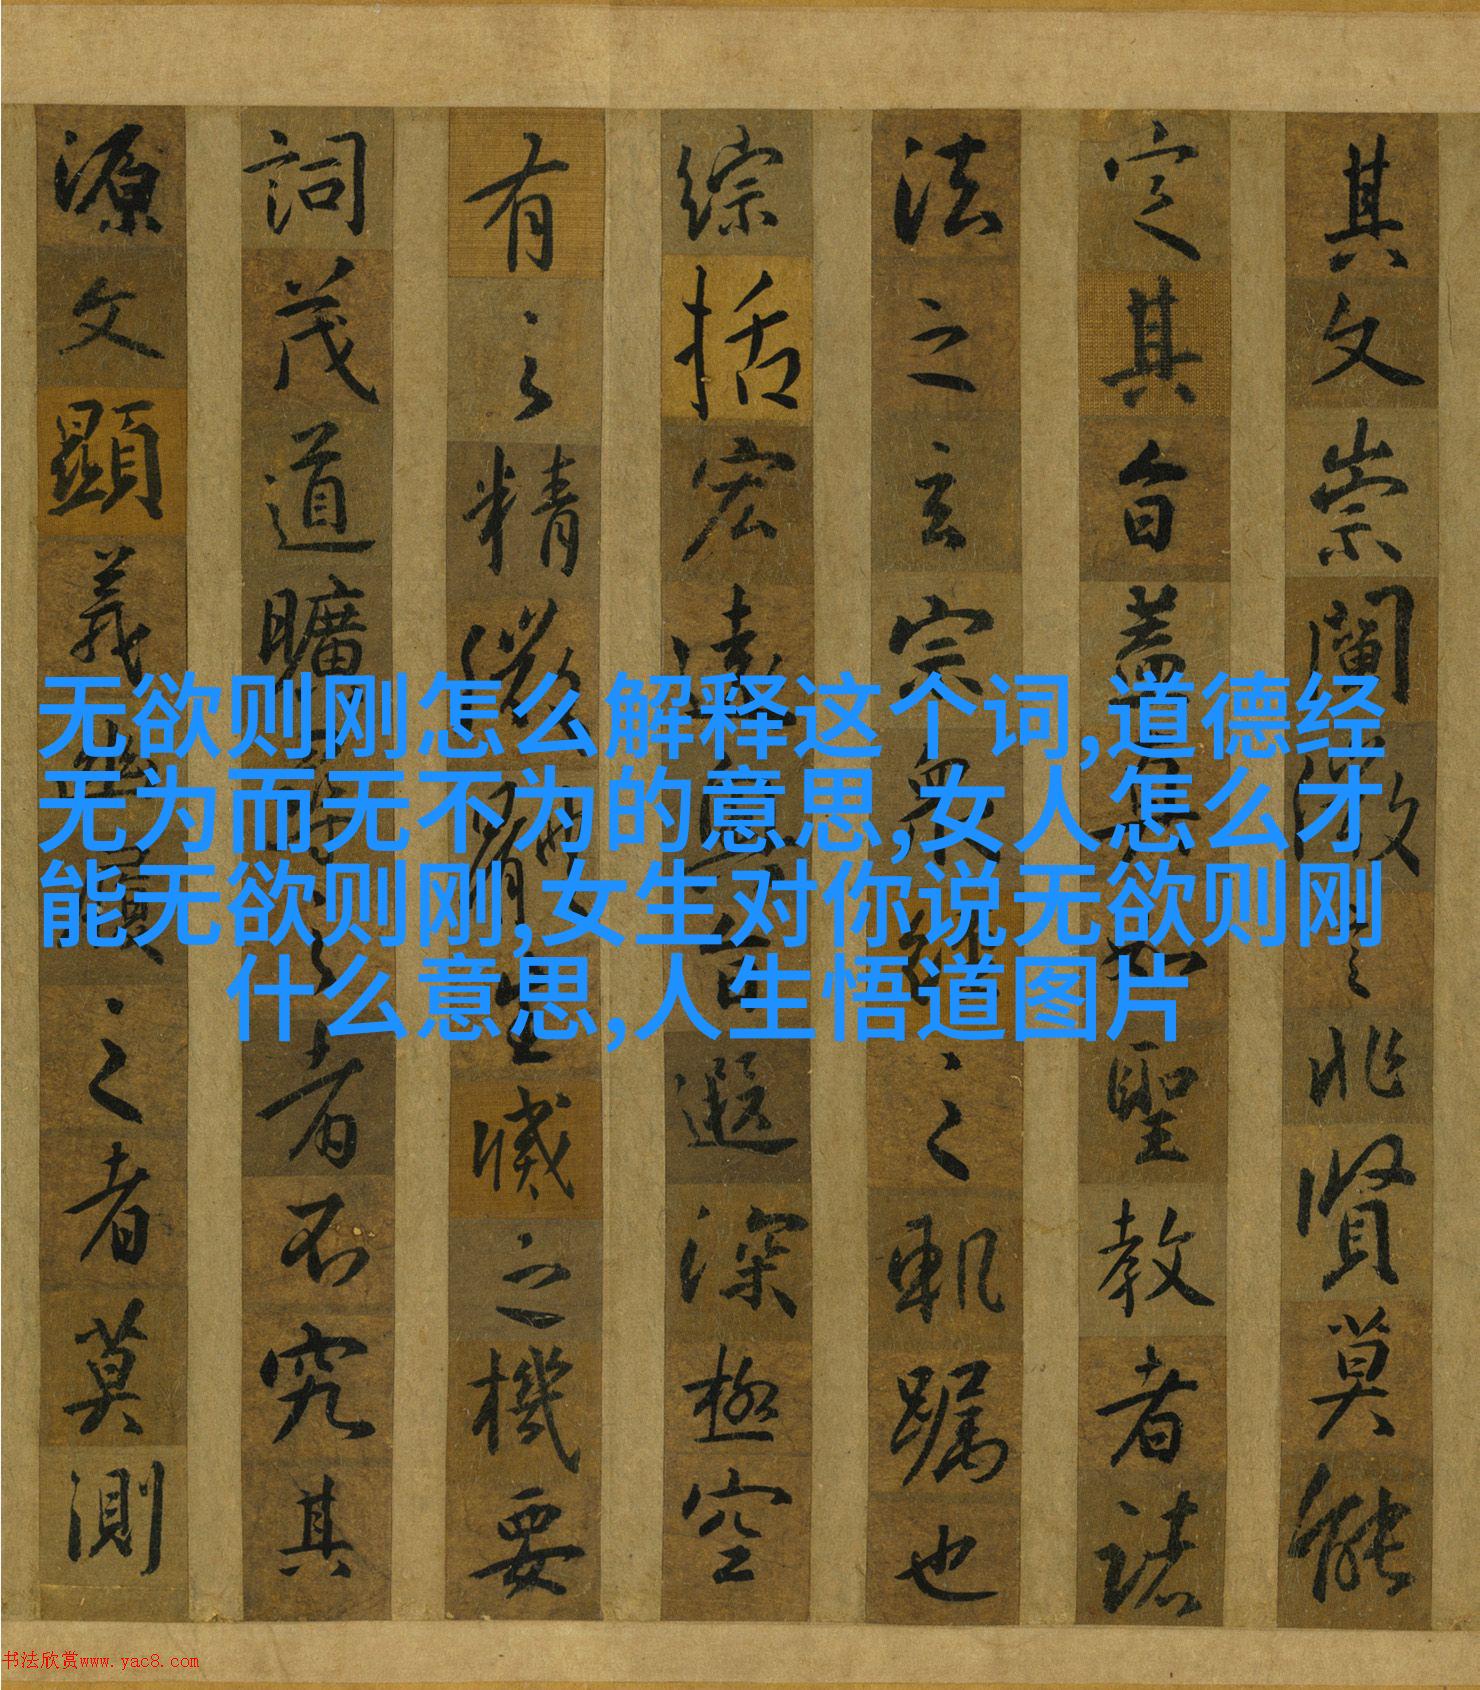 其文崇闡微言非賢莫能
定其旨蓋真如聖教者諸
法之玄宗眾經之軌躅也
綜括宏遠奧旨遐深極空
有之精微體生滅之機要
詞茂道曠尋之者不究其
源文顯義幽履之者莫測
无欲则刚怎么解释这个词,道德经
无为而无不为的意思,女人怎么才
能无欲则刚,女生对你说无欲则刚
什么意思,人生悟道图片
书法欣赏www.yac8.com